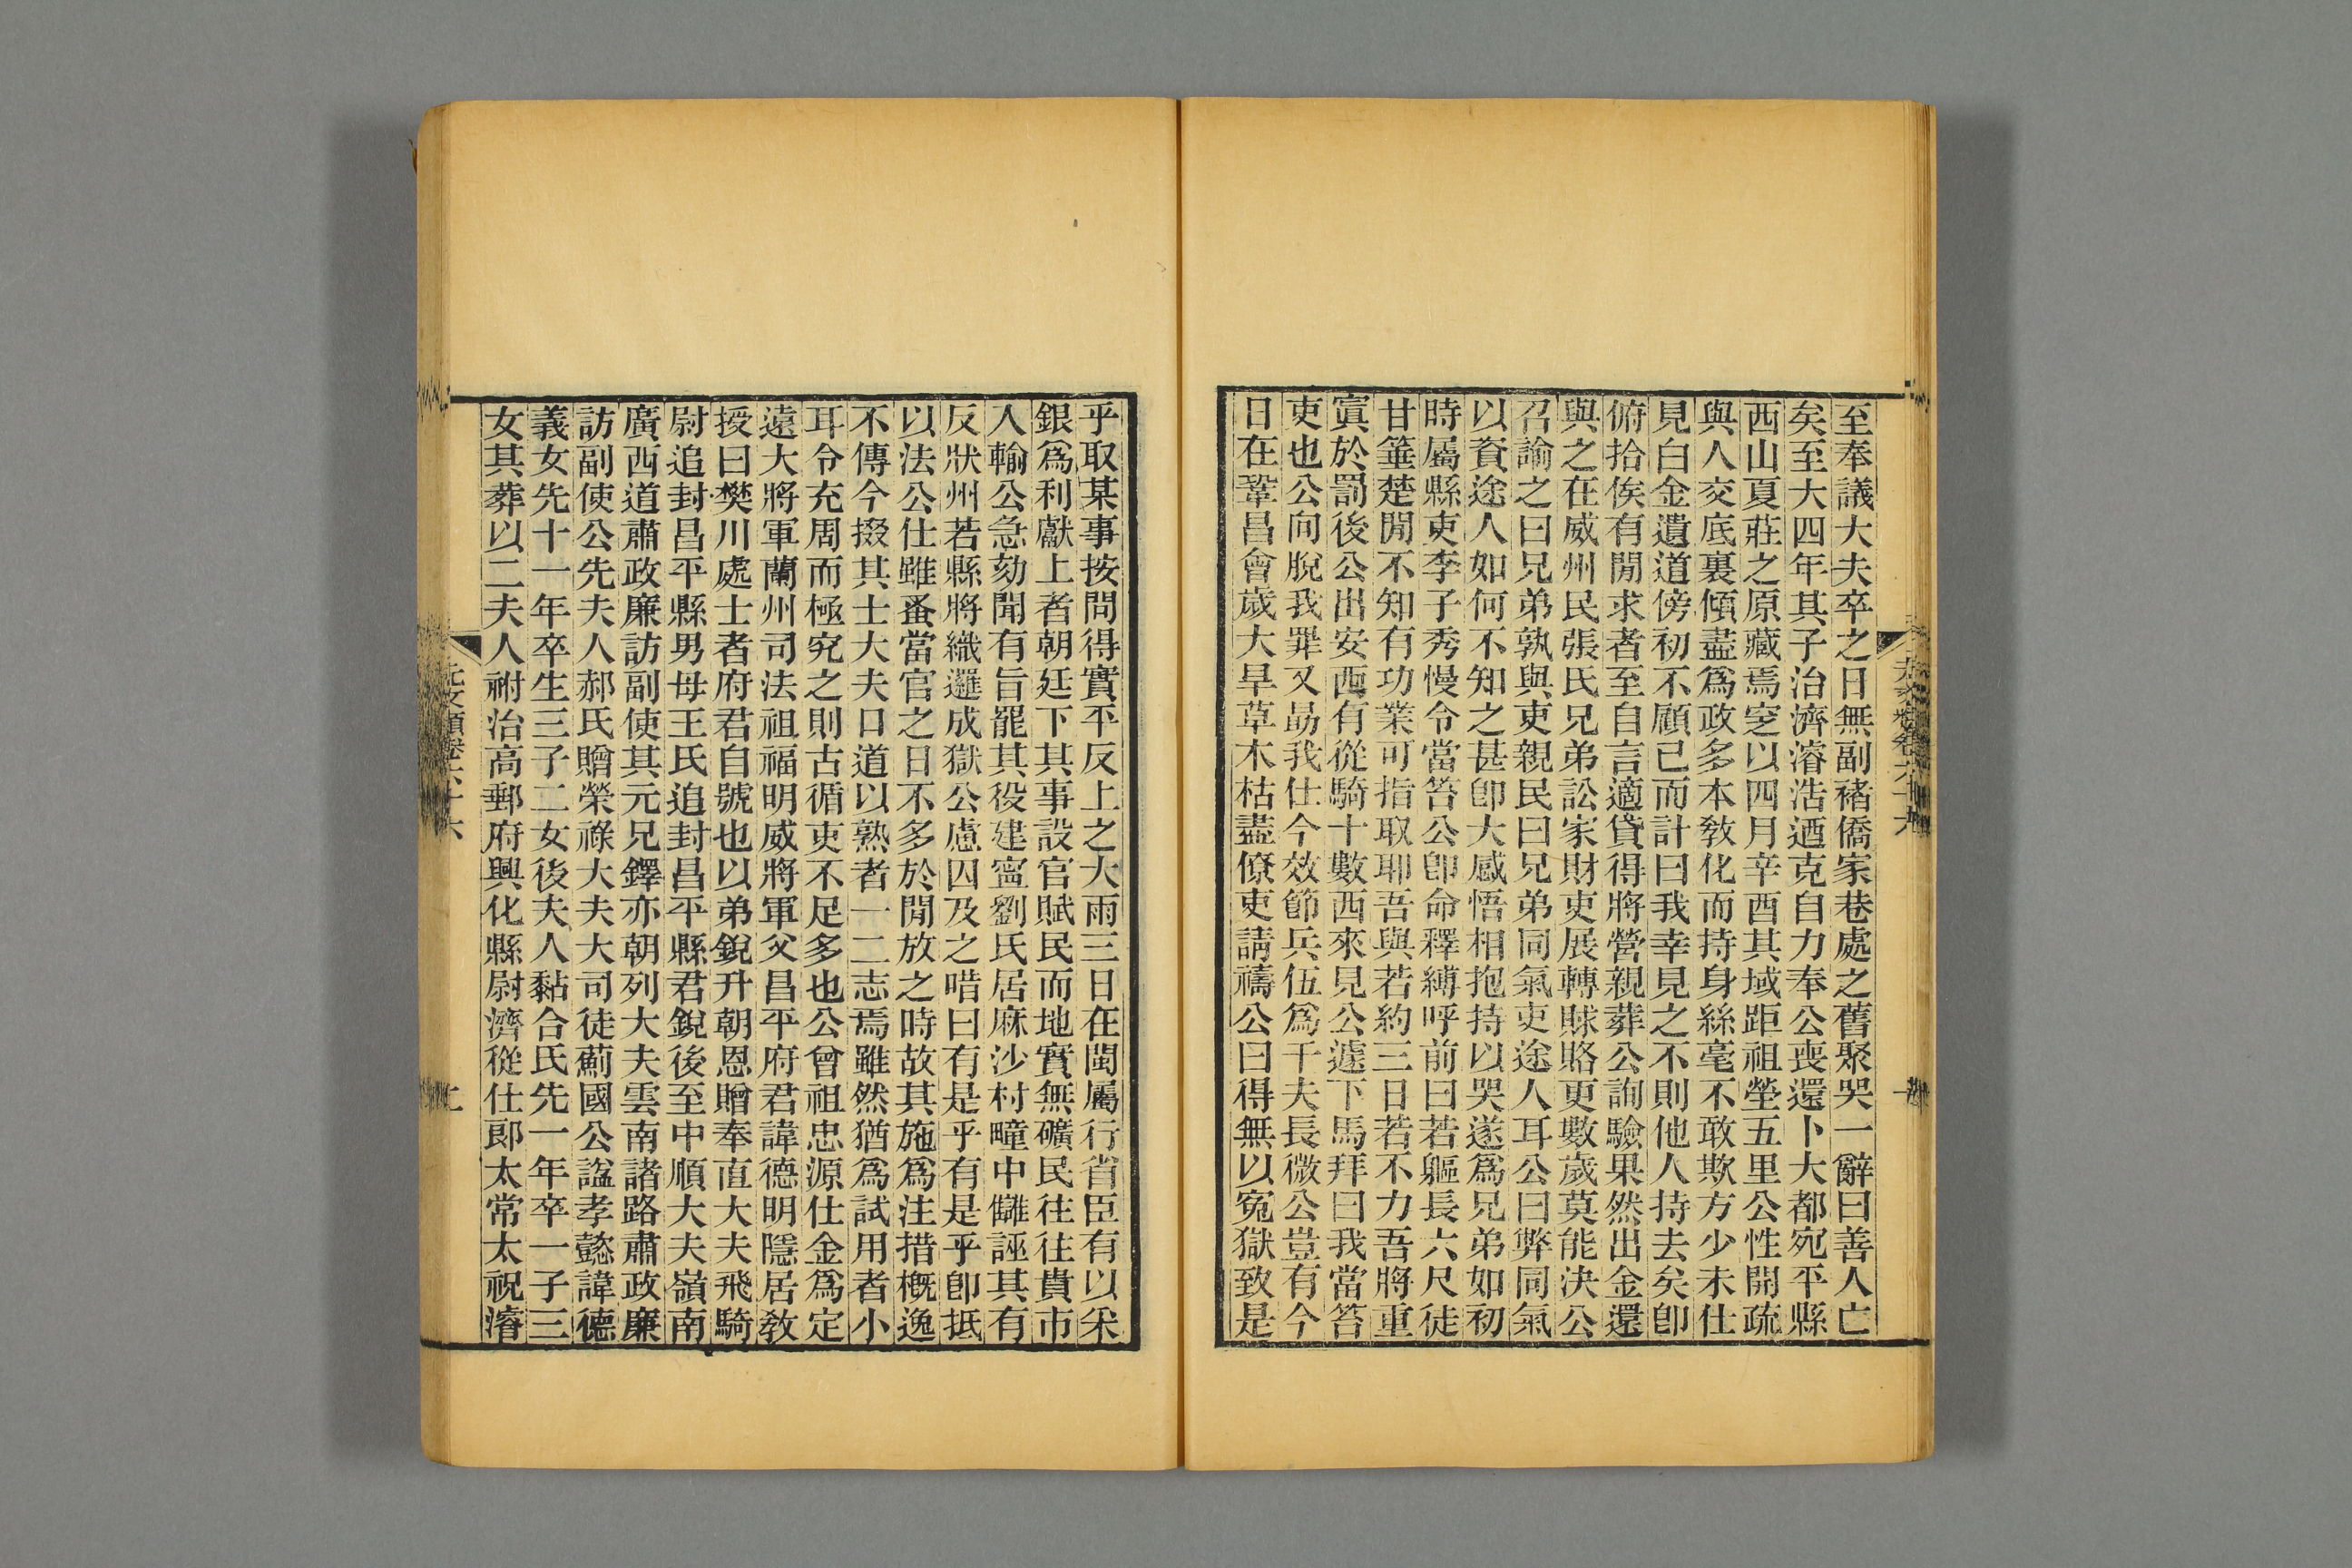 至奉議大夫卒之日無副褚僑家巷處之舊聚哭一辭曰善人亡
矣至大四年其子治濟濬浩迺克自力奉公喪還卜大都宛平縣
西山夏莊之原藏焉窆以四月辛酉其域距祖塋五里公性開疏
與人交底裏傾盡爲政多本敎化而持身絲毫不敢欺方少未仕
見白金遺道傍初不顧已而計曰我幸見之不則他人持去矣卽
俯拾俟有閒求者至自言適貸得將營親葬公詢驗果然出金還
與之在威州民張氏兄弟訟家財吏展轉賕賂更數歲莫能決公
召諭之曰兄弟孰與吏親民曰兄弟同氣吏途人耳公曰弊同氣
以資途人如何不知之甚卽大感悟相抱持以哭遂爲兄弟如初
時屬縣吏李子秀慢令當笞公卽命釋縛呼前曰若軀長六尺徒
甘箠楚閒不知有功業可指取耶吾與若約三日若不力吾將重
寘於罰後公出安西有從騎十數西來見公遽下馬拜曰我當笞
吏也公向脫我罪又勗我仕今效節兵伍爲千夫長微公豈有今
日在鞏昌會歲大旱草木枯盡僚吏請禱公曰得無以寃獄致是
乎取某事按問得實平反上之大雨三日在閩屬行省臣有以采
銀爲利獻上者朝廷下其事設官賦民而地實無礦民往往貴市
人輸公急劾聞有旨罷其役建寧劉氏居麻沙村疃中讎誣其有
反狀州若縣將織邏成獄公慮囚及之唶曰有是乎有是乎卽抵
以法公仕雖蚤當官之日不多於閒放之時故其施爲注措槪逸
不傳今掇其士大夫口道以熟者一二志焉雖然猶爲試用者小
耳令充周而極究之則古循吏不足多也公曾祖忠源仕金爲定
遠大將軍蘭州司法祖福明威將軍父昌平府君諱德明隱居敎
授曰樊川處士者府君自號也以弟銳升朝恩贈奉直大夫飛騎
尉追封昌平縣男母王氏追封昌平縣君銳後至中順大夫嶺南
廣西道肅政廉訪副使其元兄鐸亦朝列大夫雲南諸路肅政廉
訪副使公先夫人郝氏贈榮祿大夫大司徒薊國公諡孝懿諱德
義女先十一年卒生三子二女後夫人黏合氏先一年卒一子三
女其葬以二夫人祔治高郵府興化縣尉濟從仕郎太常太祝濬